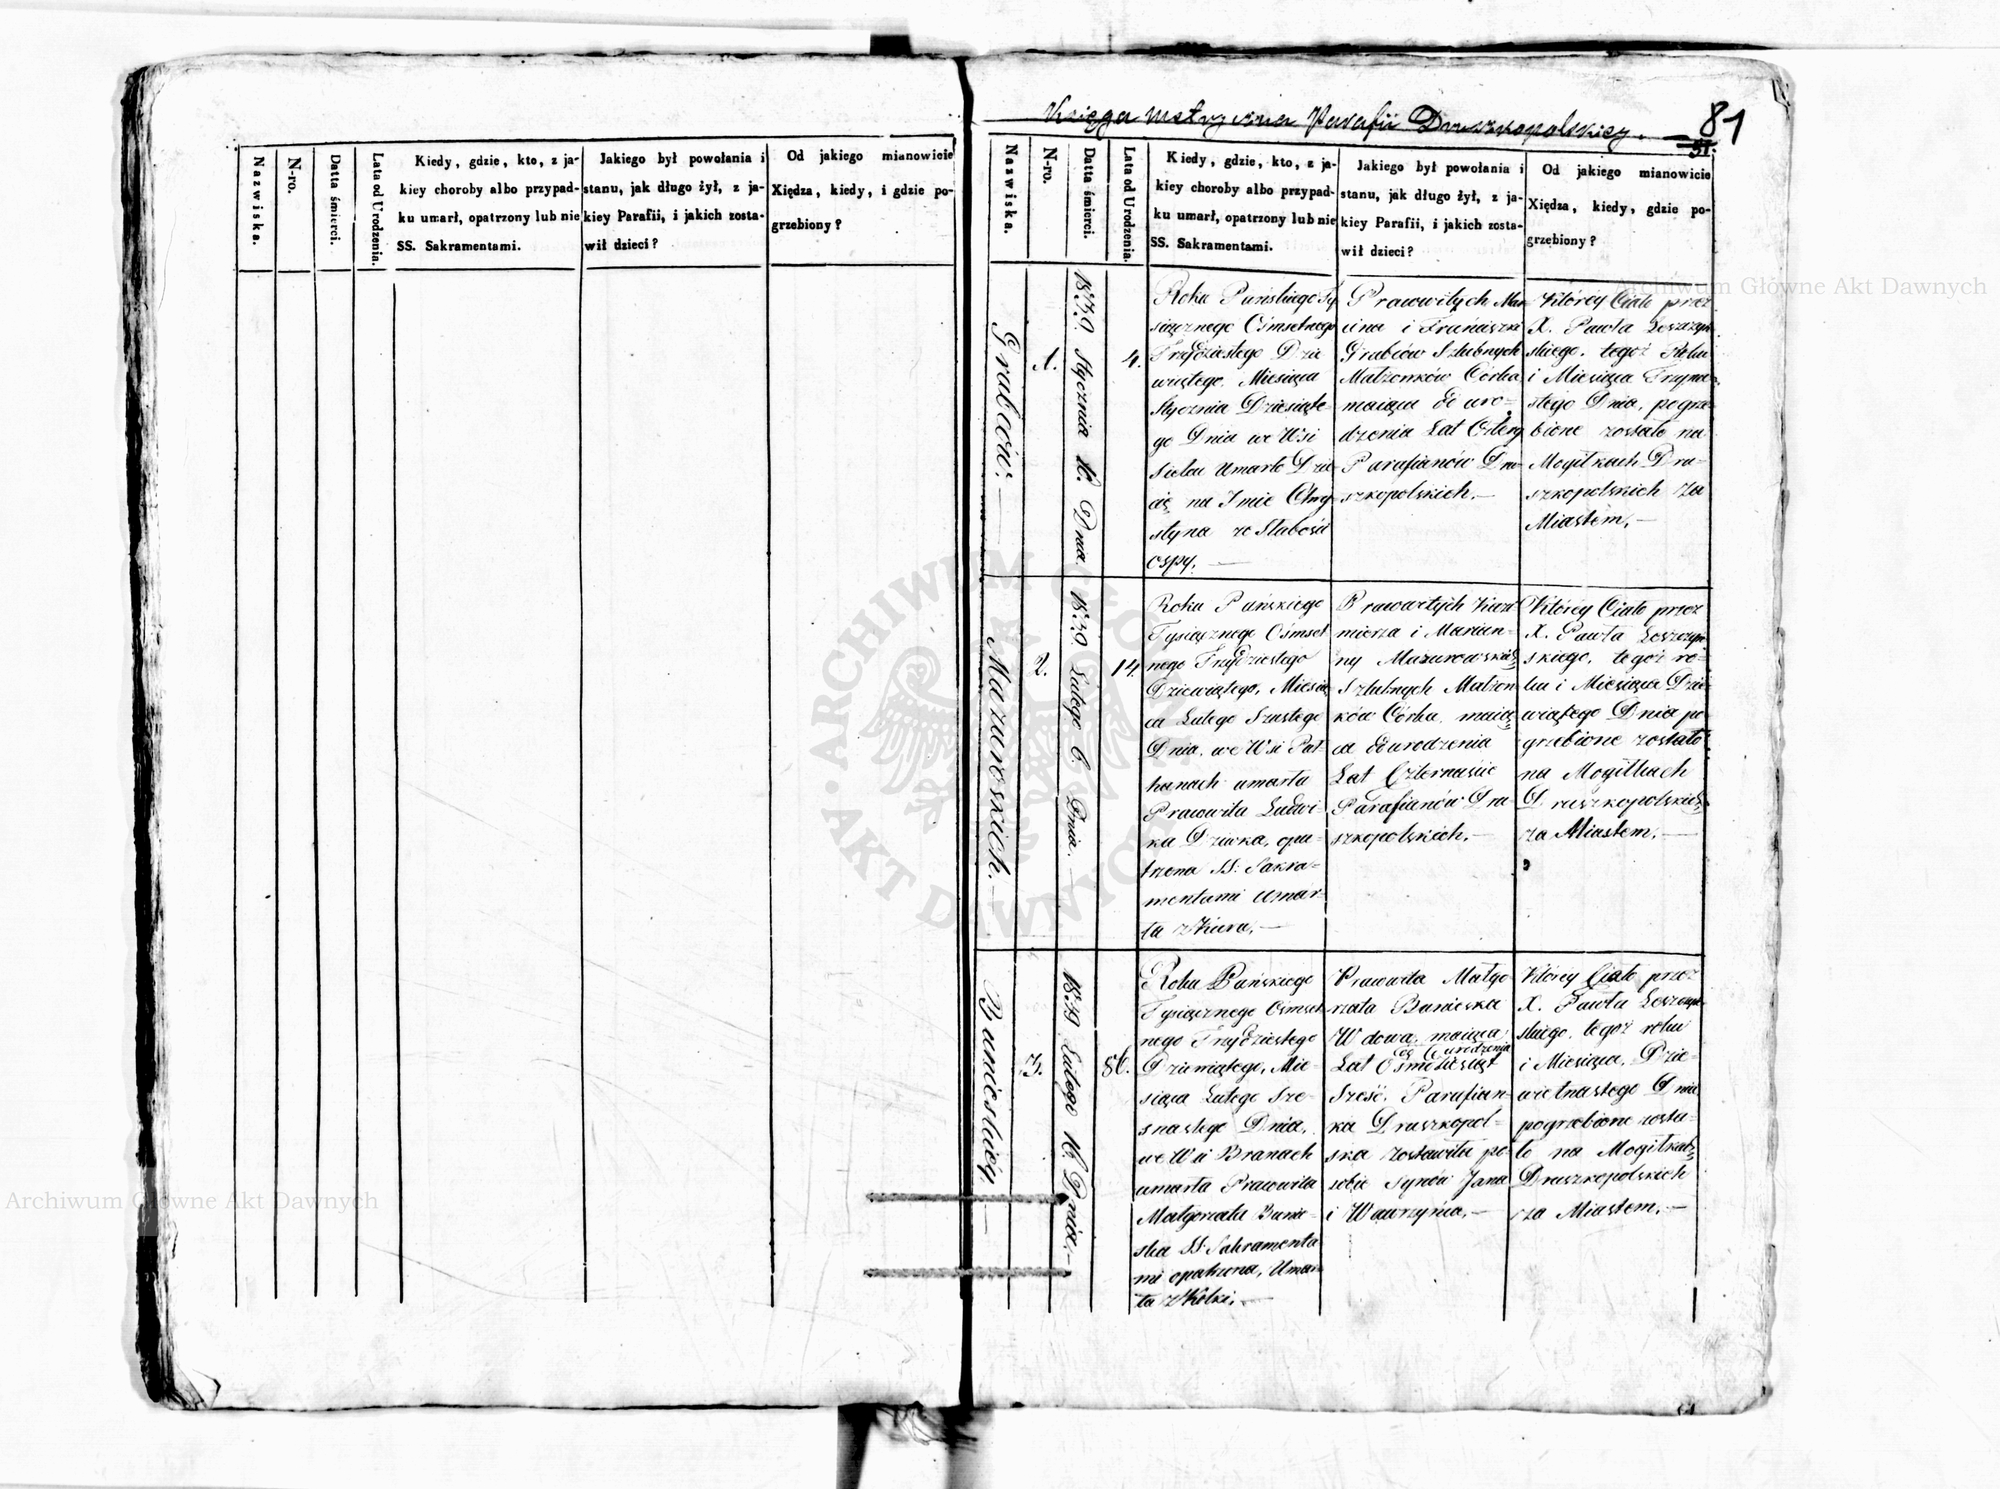 Księga metryczna Parafii Druszkopolskiey.
81
Nazwiska.
N-ro.
Datta śmierci.
Lata od Urodzenia.
Kiedy, gdzie, kto, z ja-
kiey choroby albo przypad-
ku umarł, opatrzony lub nie
SS. Sakramentami.
Jakiego był powołania i
stanu, jak długo żył, z ja-
kiey Parafii, i jakich zosta-
wił dzieci?
Od jakiego mianowicie
Xiędza, kiedy, i gdzie po-
grzebiony?
Nazwiska.
N-ro.
Datta śmierci.
Lata od Urodzenia.
Kiedy, gdzie, kto, z ja-
kiey choroby albo przypad-
ku umarł, opatrzony lub nie
SS. Sakramentami.
Jakiego był powołania i
stanu, jak długo żył, z ja-
kiey Parafii, i jakich zosta-
wił dzieci?
Od jakiego mianowicie
Xiędza, kiedy, gdzie po-
grzebiony?
Grabców.
1.
1839. Stycznia 10. Dnia.
4.
Roku Pańskiego Ty
siącznego Ośmsetnego
Trzydziestego Dzie
wiątego, Miesiąca
Stycznia Dziesiąte-
go Dnia we Wsi
umarło Dzie-
cię na Imie Chry-
styna ze Słabości
Ospy.
Prawowitych Mar
cina i Franciszki
Grabców Szlubnych
Małżonków Córka
maiąca od uro-
dzenia Lat Cztery
Parafianów Dru-
szkopolskich.
Którey Ciało przez
X. Pawła Leszczyń
skiego, tegoż Roku
i Miesiąca Trzyna-
stego Dnia, pogrze-
bione zostało na
Mogiłkach Dru-
szkopolskich za
Miastem.
Mazurowskich.
2.
1839. Lutego 6. Dnia.
14.
Roku Pańskiego
Tysiącznego Ośmset
nego Trzydziestego
Dziewiątego, Miesią
ca Lutego Szustego
Dnia, we Wsi Poł
hanach umarła
Prawowita Ludwi-
ka Dziewka, opa-
trzona SS: Sakra-
mentami Umar-
ła
Prawowitych Kazi
mierza i Marian-
ny Mazurowskich
Szlubnych Małżon
ków Córka, maiąc
ca od urodzenia
Lat Czternaście
Parafianów Dru-
szkopolskich.
Którey Ciało przez
X. Pawła Leszczyń
skiego, tegoż ro-
ku i Miesiąca Dzie
wiątego Dnia po-
grzebione zostało
na Mogiłkach
Druszkopolskich
za Miastem.
Banieskiey
3.
1839 Lutego 16. Dnia.
86.
Roku Pańskiego
Tysiącznego Ośmset
nego Trzydziestego
Dziewiątego, Mie-
siąca Lutego Sze-
snastego Dnia,
we Wsi Branach
umarła Prawowita
Małgorzata Banie-
ska SS: Sakramenta
mi opatrzona, Umar
ła z Kolki.
Prawowita Małgo
rzata Banieska
Wdowa, maiąca
od urodzenia
Lat Ośmdziesiąt
Sześć, Parafian-
ka Druszkopol-
ska zostawiła po
sobie Synów Jana
i Wawrzyńca.
Którey Ciało przez
X. Pawła Leszczyń
skiego, tegoż roku
i Miesiąca, Dzie-
wietnastego Dnia
pogrzebione zosta-
ło na Mogiłkach
Druszkopolskich
za Miastem.
Archiwum Główne Akt Dawnych
Archiwum Główne Akt Dawnych
ARCHIWUM GŁÓWNE AKT DAWNYCH